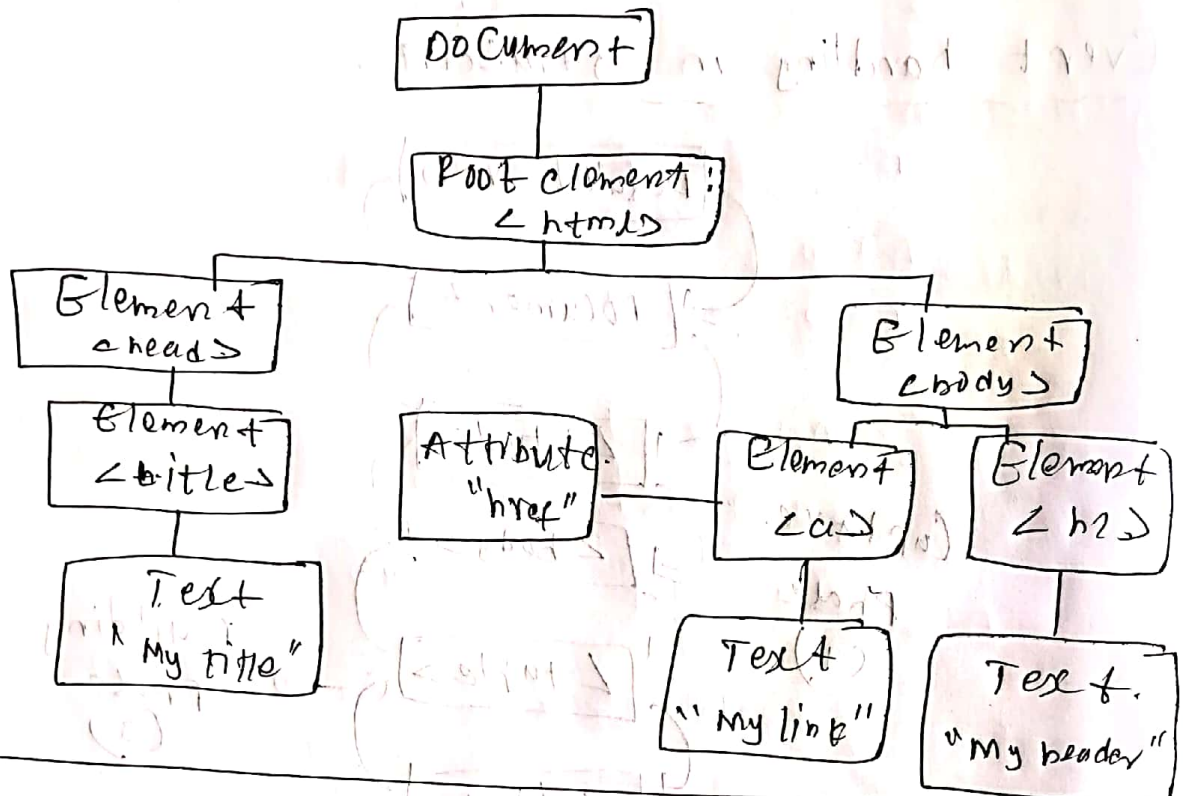 Document
Root element:
<html>
Element
<head>
Element
<body>
Element
<title>
Attribute.
"href"
Element
<a>
Element
<h1>
Text
"My title"
Text
"My link"
Text.
"My header"